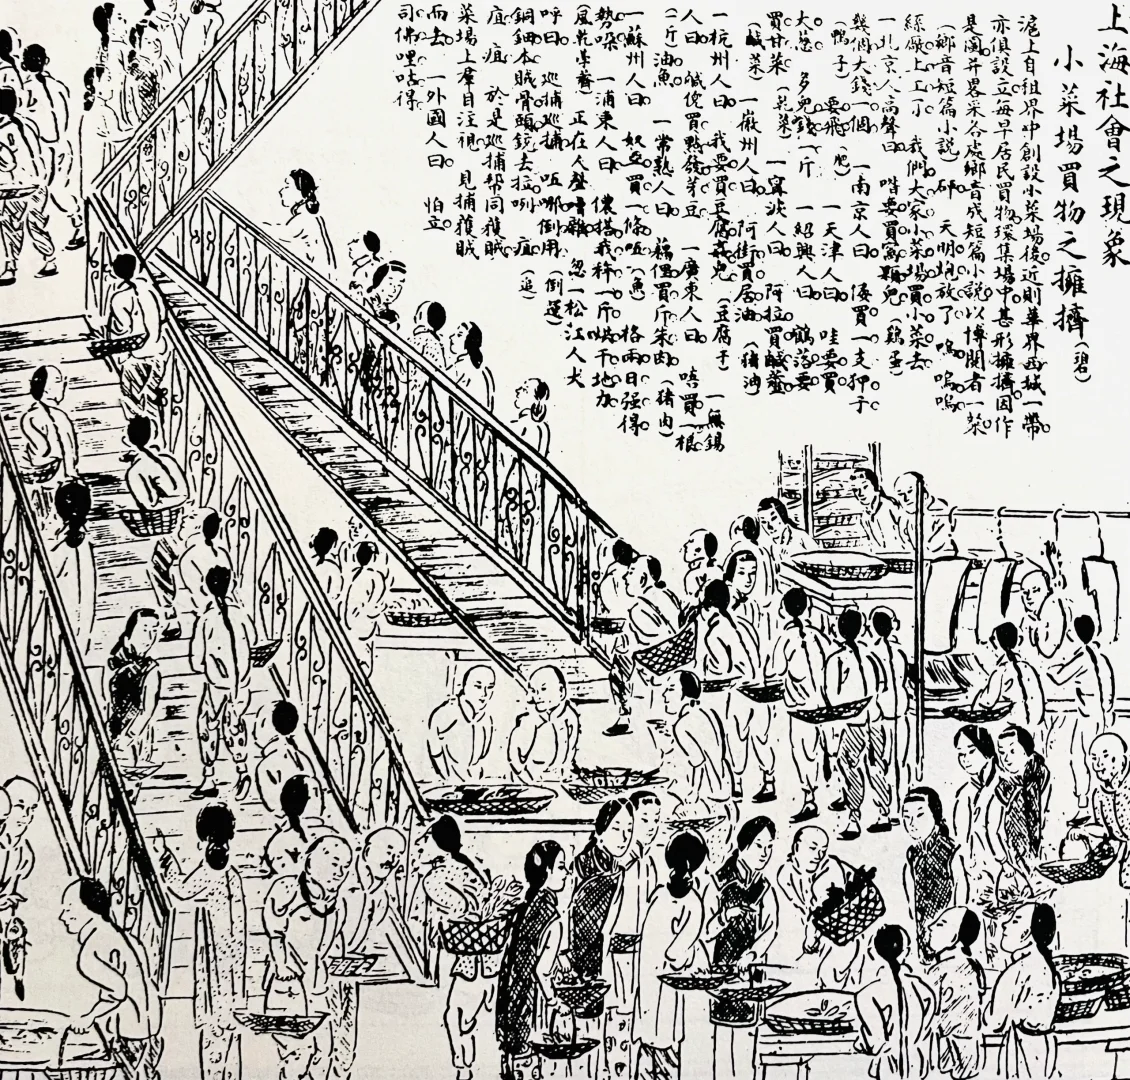 上海社會之現象
小菜場買物之擁擠（碧）
滬上自租界中創設小菜場後近則華界西城一帶
亦俱設立每早居民買物環集場中甚形擁擠因作
是圖并畧采各處鄉音成短篇小說以博閱者一粲
（鄉音短篇小說） 砰 天明炮放了 嗚嗚 嗚嗚
絲廠上工了 我們大家小菜場買小菜去
一北京人高聲曰 喒要買窩顆兒（鷄蛋）
幾個大錢一個 一南京人曰 倭買一支押子
（鴨子） 要飛（肥） 一天津人曰 哇要買
大葱 多兒錢一斤 一紹興人曰 鶴落要
買甘菜（莧菜） 一寧波人曰 阿拉買鹹虀
（鹹菜） 一徽州人曰 阿街買居油（猪油）
一杭州人曰 我要買豆腐兒（豆腐干） 一無錫
人曰 倪買點發芽豆 一廣東人曰 唔買一根
（一斤）油魚 一常熟人曰 買斤朱肉（猪肉）
一蘇州人曰 奴要買一條魚（魚） 格兩日强得
勢 一浦東人曰 儂搭我秤一斤 干地力
（風乾荸薺） 正在人聲嘈雜 忽一松江人大
呼曰 巡捕巡捕 （倒運）
銅鈿本賊骨頭鏡去拉咧 （追）
疽疽 於是巡捕帮同獲賊
菜場上羣目注視 見捕獲賊
而去 一外國人曰 怕立
司佛哩咕得